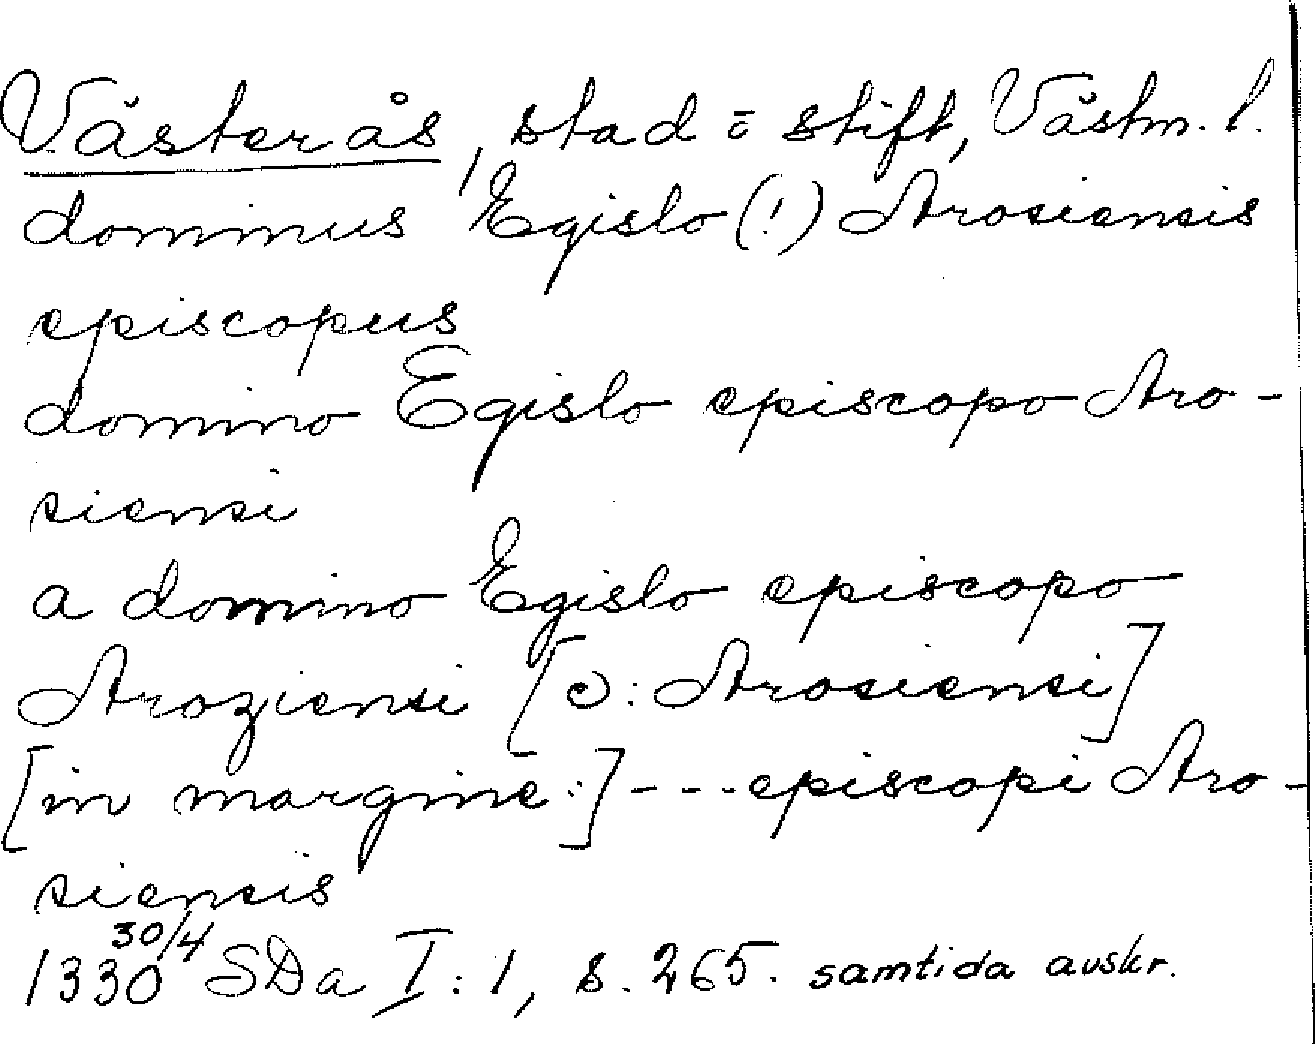 Västerås, stad o stift, Västm. l.
dominus Egislo (!) Arosiensis
episcopus
domino Egislo episcopo Aro-
siensi
a domino Egislo episcopo
Aroziensi [ɔ: Arosiensi]
[in margine:] --- episcopi Aro-
siensis
1330 30/4 SDa I:1, s. 265. samtida avskr.